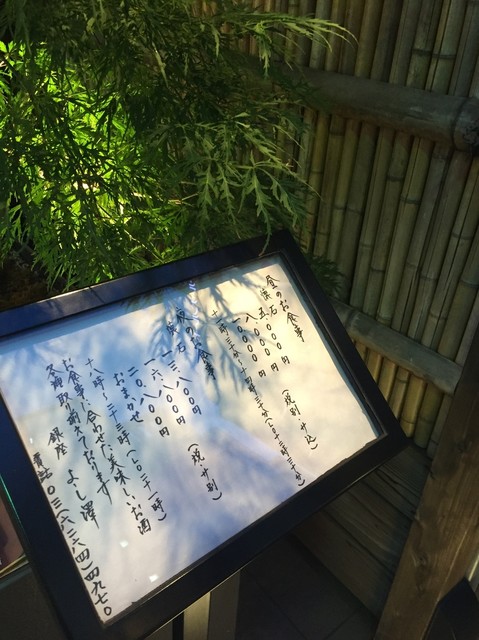 昼のお食事
懐石
五、〇〇〇円
八、〇〇〇円
一〇、〇〇〇円
(税別・サ込)
十一時三十分〜十四時三十分(LO十三時三十分)
夜のお食事
懐石
八〇〇円
二〇、八〇〇円
(税・サ別)
おまかせ
十八時〜二十三時(LO二十一時)
お食事に合わせた美味しいお酒
各種取り揃えております
銀座 よし澤
電話〇三(六二六四)四九七〇